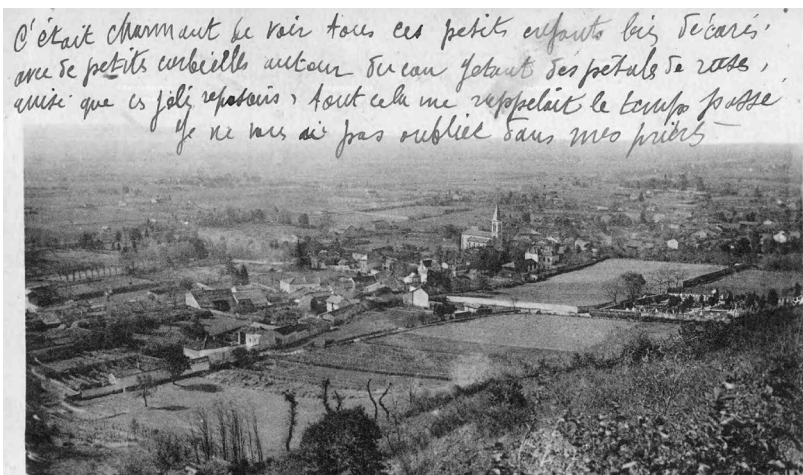 C'était charmant de voir tous ces petits enfants bien décorés,
avec de petits corbielles autour du cou jetant des pétals de roses,
ainsi que ces jolis reposoirs, tout cela me rappelait le temps passé
Je ne vous ai pas oublier dans mes prières